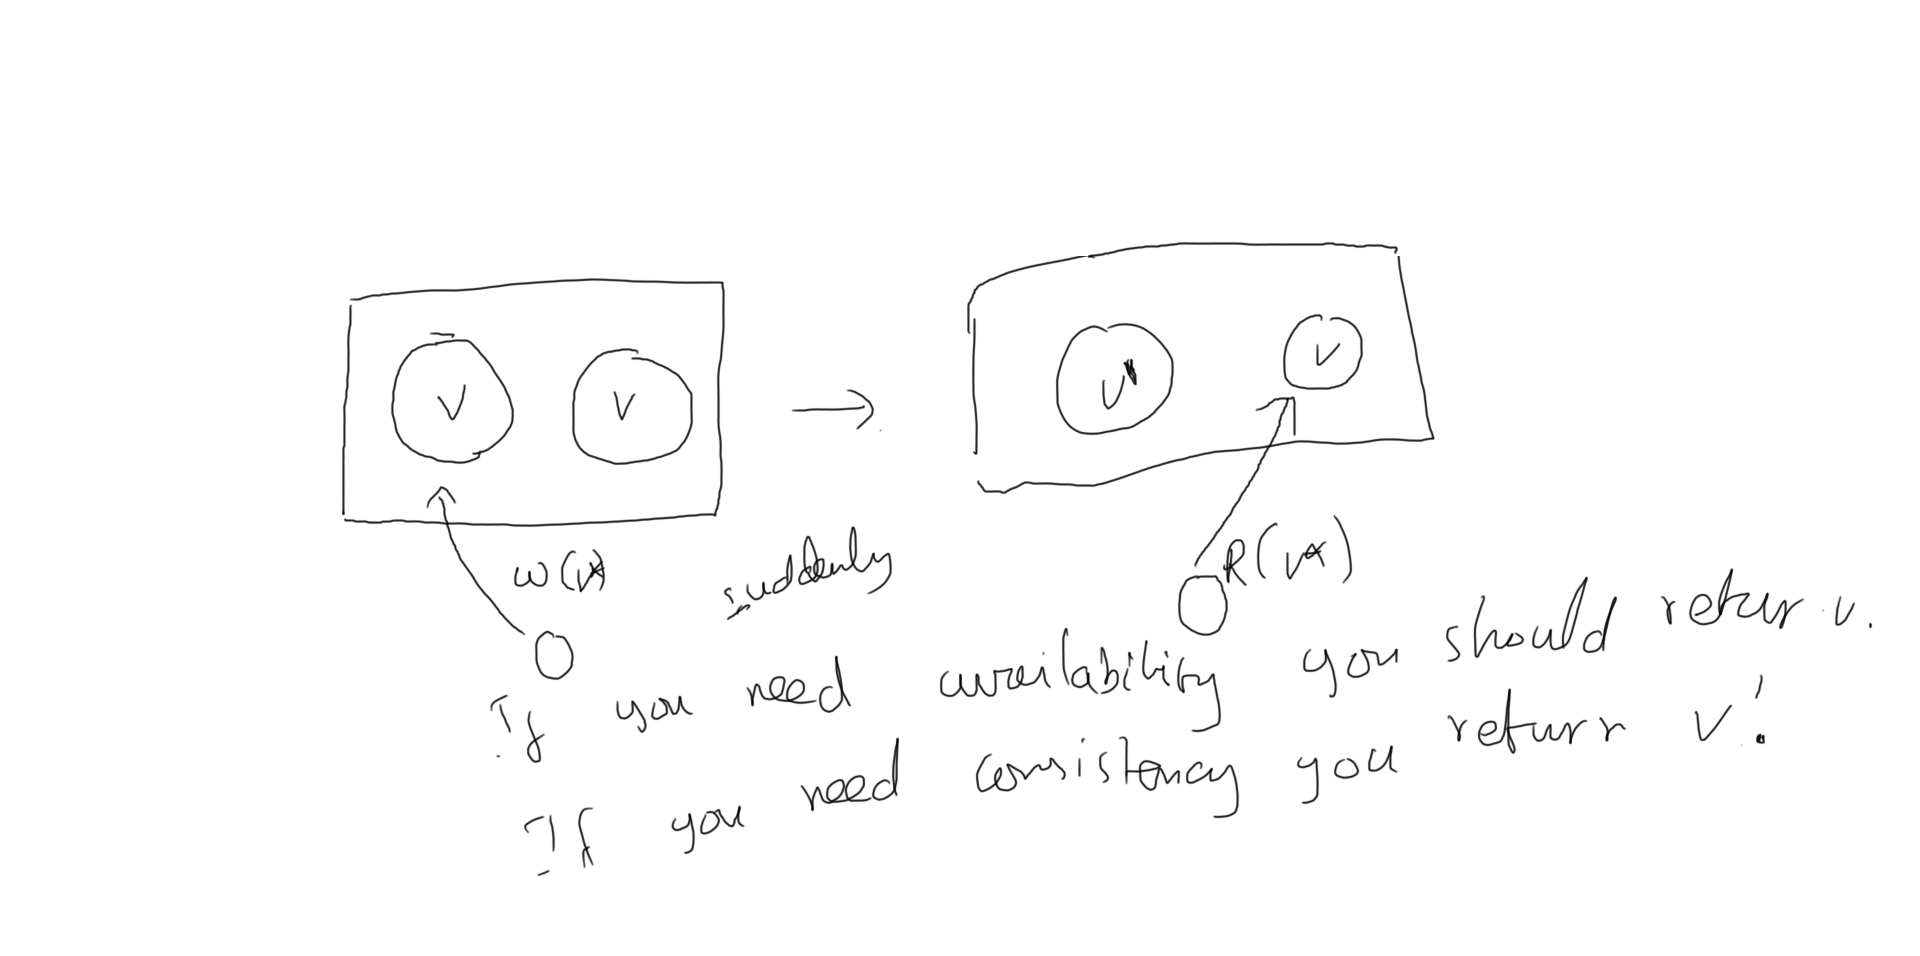 V V
V' V
W(V*)
suddenly
R(V*)
If you need availability you should retur v.
If you need consistency you return V'.